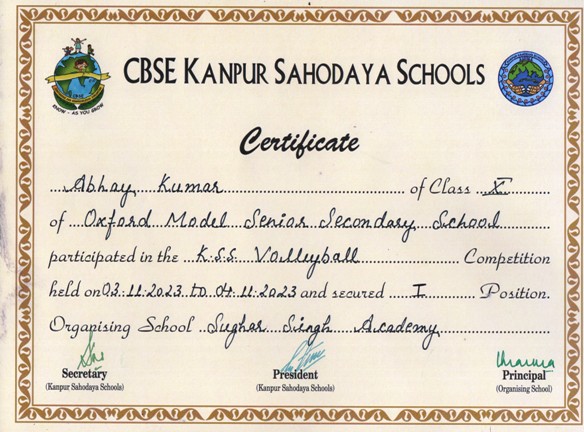 CBSE KANPUR SAHODAYA SCHOOLS
KNOW - AS YOU GROW
Certificate
Abhay Kumar of Class X
of Oxford Model Senior Secondary School
participated in the K.S.S Volleyball Competition
held on 03.11.2023 to 04.11.2023 and secured I Position.
Organising School Sughar Singh Academy
Secretary
(Kanpur Sahodaya Schools)
President
(Kanpur Sahodaya Schools)
Principal
(Organising School)